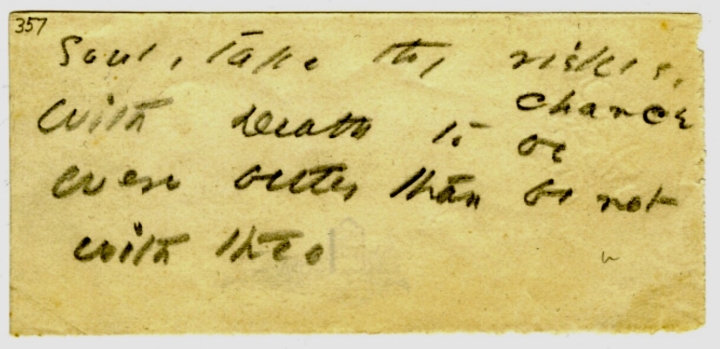 357
Soul, take thy risk,
chance
With Death to be
were better than be not
with thee